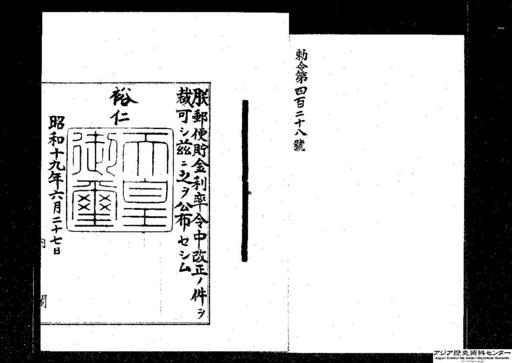 勅令第四百二十八號
朕郵便貯金利率令中改正ノ件ヲ
裁可シ茲ニ之ヲ公布セシム
裕仁
天皇
御璽
昭和十九年六月二十七日
内閣
アジア歴史資料センター
Japan Center for Asian Historical Records